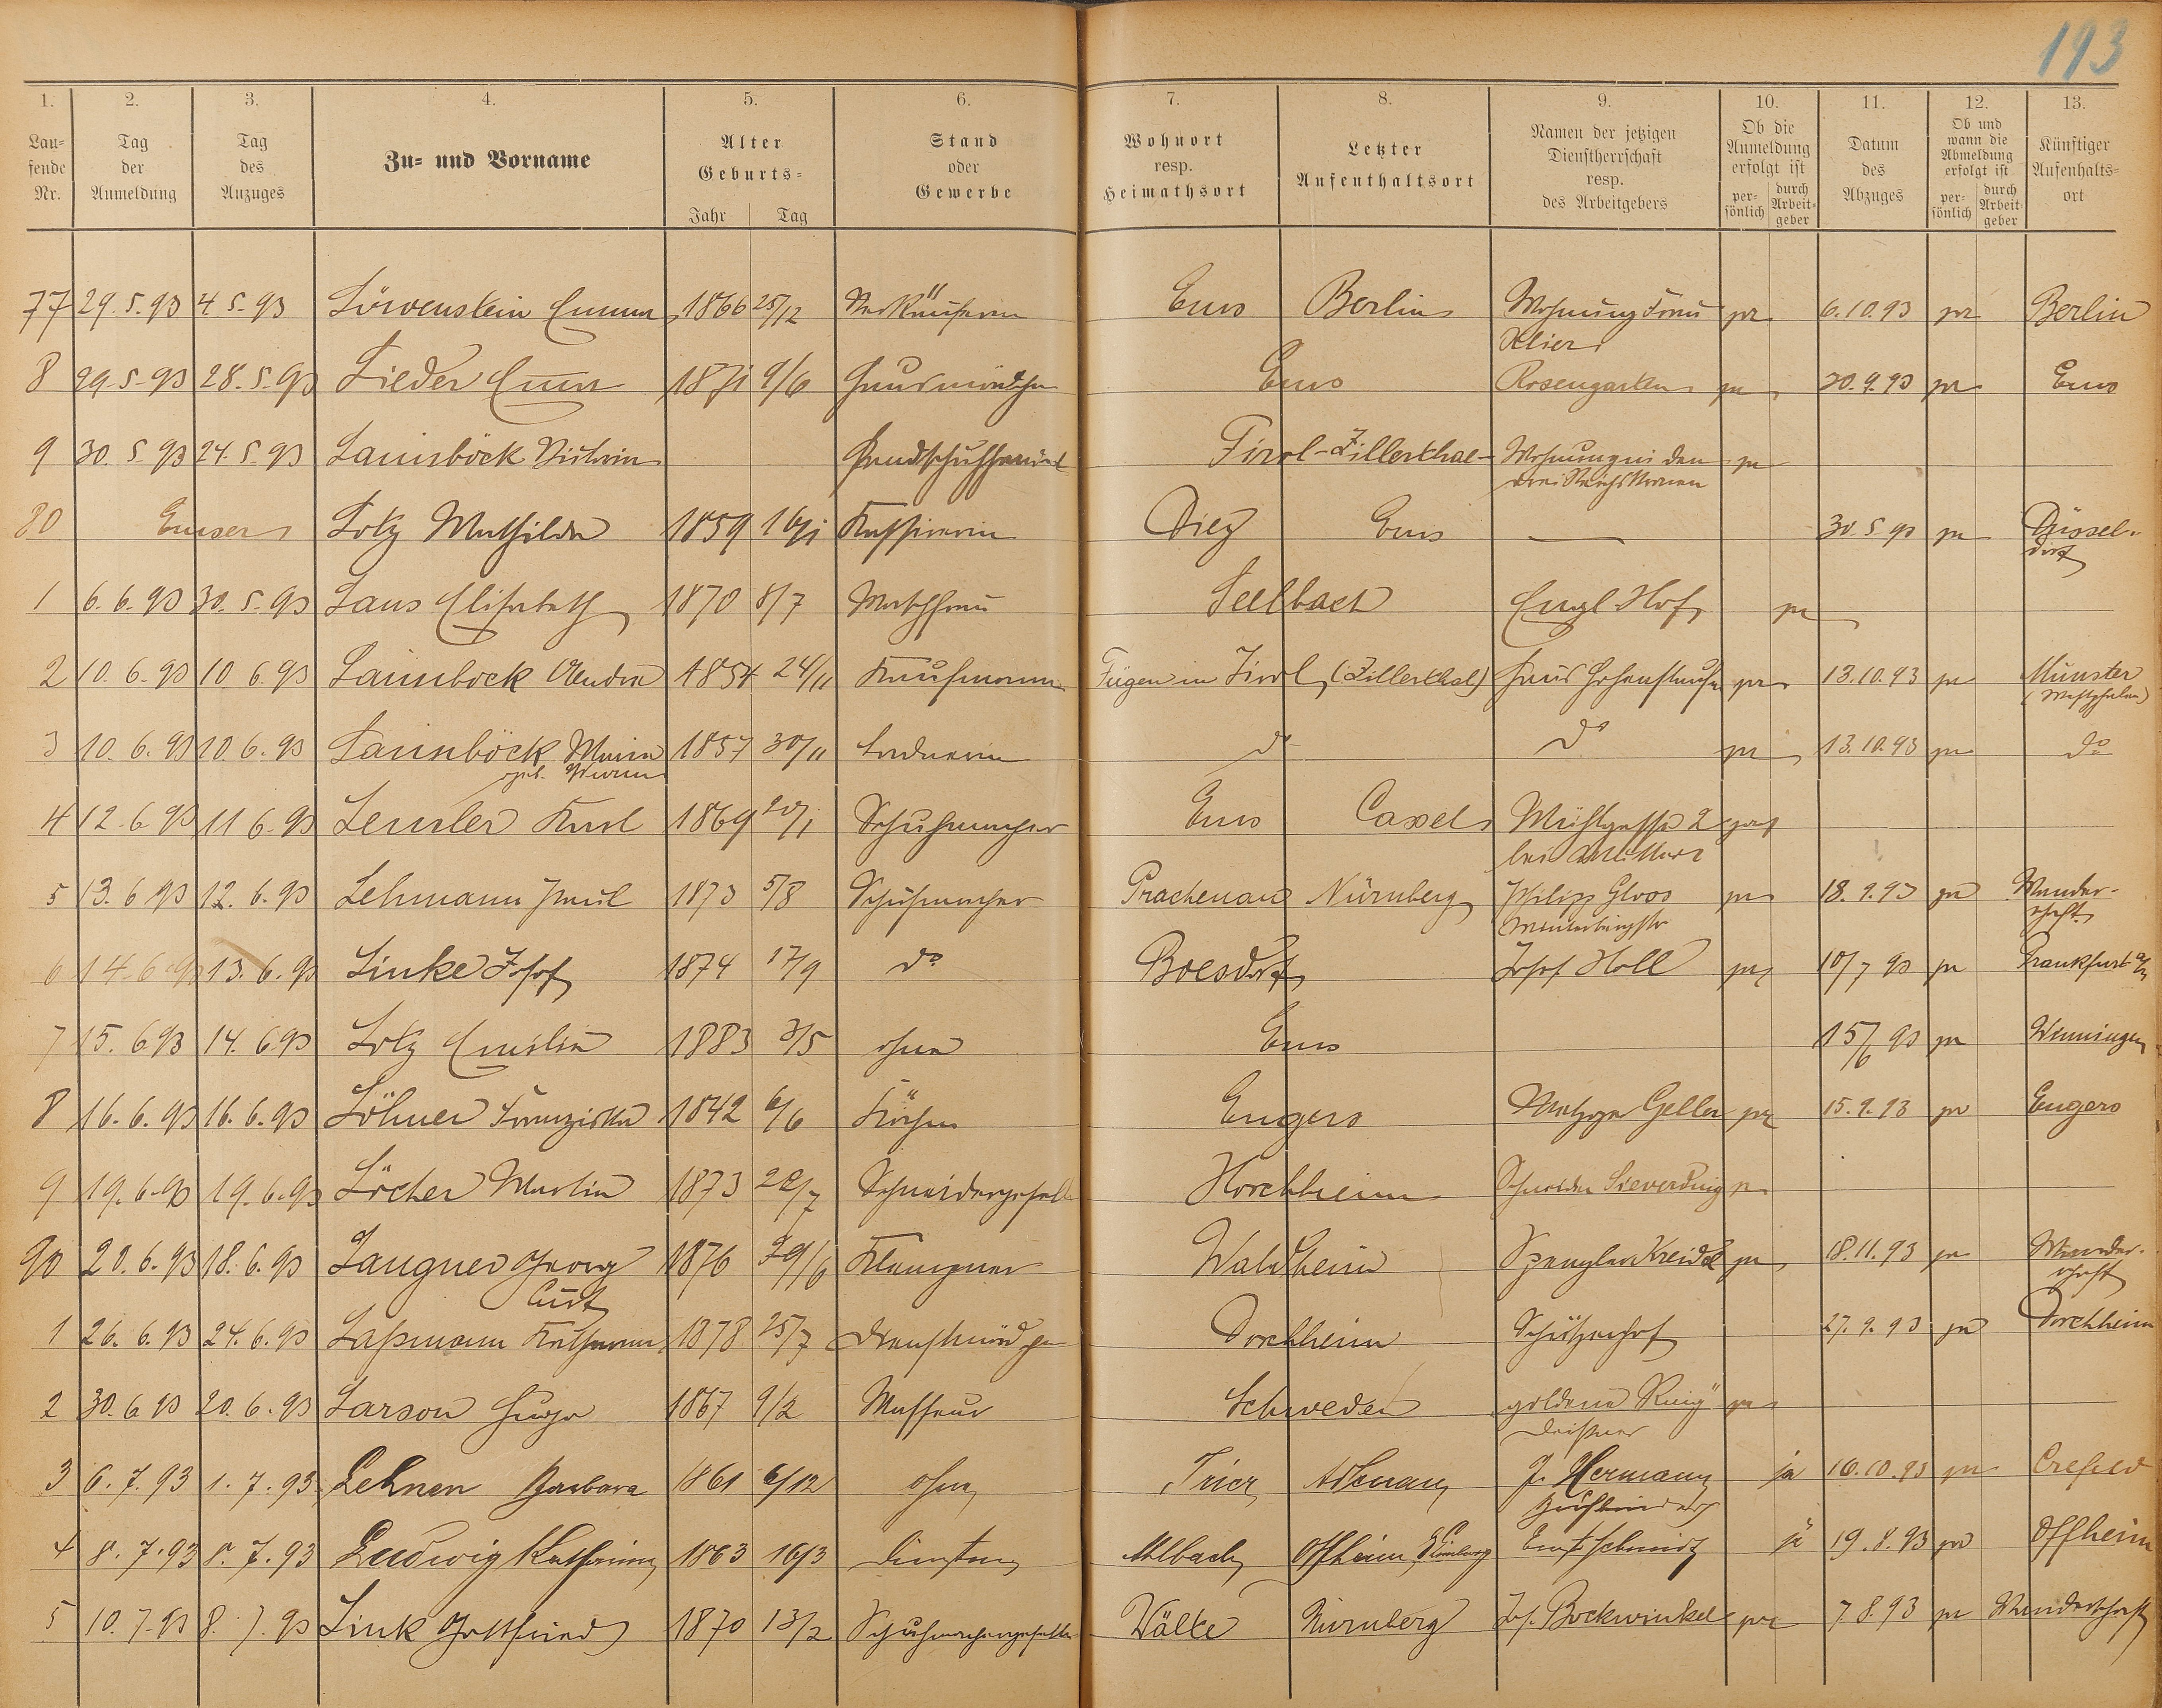 193
1. 2. 3. 4. 5. 6. 7. 8. 9. 10. 11. 12. 13.
Lau-
fende
Nr.
Tag
der
Anmeldung
Tag
des
Anzuges
Zu- und Vorname
Alter
Geburts-
Jahr Tag
Stand
oder
Gewerbe
Wohnort
resp.
Heimathsort
Letzter
Aufenthaltsort
Namen der jetzigen
Dienstherrschaft
resp.
des Arbeitgebers
Ob die
Anmeldung
erfolgt ist
per-
sönlich
durch
Arbeit-
geber
Datum
des
Abzuges
Ob und
wann die
Abmeldung
erfolgt ist
per-
sönlich
durch
Arbeit-
geber
Künftiger
Aufenhalts-
ort
77 29.5.93 4 5.93 Löwenstein Emma 1866 25/12 Verkäuferin Ems Berlin Wohnung Frau pr 6.10.93 pr Berlin
Klier
8 29.5.93 28.5.93 Lieder Emma 1871 9/6 Hausmädchen Ems Rosengarten pr 20.9.93 pr Ems
9 30.5.93 24.5.93 Lainsböck Handschuhhandel Tirol-Zillerthal- Wohnung in den pr
drei Reichskronen
80 Emser Lotz Mathilde 1859 16/1 Kassirerin Diez Ems — 30.5.93 pr Düssel-
dorf
1 6.6.93 30.5.93 Laus Elisabeth 1870 8/7 Waschfrau Seelbach Engl. Hof pr
2 10.6.93 10.6.93 Laimböck Andrä 1854 24/11 Kaufmann Fügen in Tirol (Zillerthal) Haus Hohenstaufen pr 13.10.93 pr Münster
(Westphalen)
3 10.6.93 10.6.93 Laimböck Maria 1857 30/11 Ladnerin do do pr 13.10.93 pr do
geb. Wurm
4 12.6.93 11.6.93 Lemler Karl 1869 20/1 Schuhmacher Ems Cassel Mühlgasse 2
bei
5 13.6.93 12.6.93 Lehmann Paul 1873 5/8 Schuhmacher Prachenau Nürnberg Philipp Gloos pr 18.9.93 pr Wander-
schaft
6 14.6.93 13.6.93 Linke Josef 1874 17/9 do Boesdorf Josef Holl pr 10/7 93 pr Frankfurt a/M
7 15.6.93 14.6.93 Lotz Emilie 1883 3/5 ohne Ems 15/6 93 pr Winningen
8 16.6.93 16.6.93 Löhner Franziska 1842 6/6 Köchin Engers Metzger Geller pr 15.9.93 pr Engers
9 19.6.93 19.6.93 Löcher Martin 1873 22/7 Schneidergeselle Horchheim Schneider Sieverding pr
90 20.6.93 18.6.93 Langner Georg 1876 29/6 Klempner Waldheim Spengler Kreidel pr 18.11.93 pr Wander-
Curt schaft
1 26.6.93 24.6.93 Laßmann Katharina 1878 25/7 Dienstmädchen Dorchheim Schützenhof 27.9.93 pr Dorchheim
2 30.6.93 20.6.93 Larson Hugo 1867 9/2 Masseur Schweden goldene Ring pr
3 6.7.93 1.7.93 Lehnen Barbara 1861 6/12 ohne Trier Adenau J. Hermann ja 16.10.93 pr Crefeld
Buchbinder
4 8.7.93 8.7.93 Ludwig Katharina 1863 16/3 Ahlbach Offheim b/Limburg Ernst Schmidt ja 19.8.93 pr Offheim
5 10.7.93 8.7.93 Link Gottfried 1870 13/2 Schuhmachergeselle Wälbe Nürnberg Jos. Bockwinkel pr 7.8.93 pr Wanderschaft